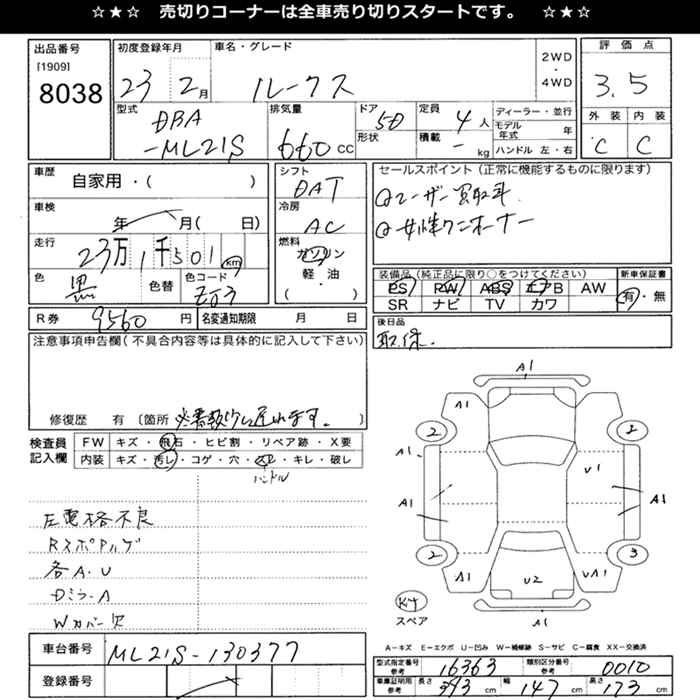 ☆★☆ 売切りコーナーは全車売り切りスタートです。 ☆★☆
出品番号
[1909]
8038
初度登録年月
23 2月
車名・グレード
ルークス
2WD
・
4WD
評価点
3.5
外装 内装
C C
型式
DBA
-ML21S
排気量
660 CC
ドア
5D
形状
定員
4人
積載
- kg
ディーラー・並行
モデル年式 年
ハンドル 左・右
車歴
自家用・( )
車検
年 月( 日)
走行
23万1千501 km
色
黒
色替
色コード
ZJ3
シフト
DAT
冷房
AC
燃料
ガソリン
軽・油
( )
セールスポイント(正常に機能するものに限ります)
①ユーザー買取車
②女性ワンオーナー
装備品(純正品に限り○をつけてください)
PS PW ABS エアB AW
SR ナビ TV カワ
新車保証書
有・無
R券 9560円
名変通知期限 月 日
後日品
取保.
注意事項申告欄(不具合内容等は具体的に記入して下さい)
修復歴 有〔箇所 ※書類少し遅れます.
検査員
記入欄
FW キズ・飛石・ヒビ割・リペア跡・X要
内装 キズ・汚レ・コゲ・穴・スレ・キレ・破レ
ハンドル
左電格不良
各A.U
Dミラ-A
Wカバー欠
A1
A1
2 2
A1. U1
A1 A1
2 3
A1 U2 UA1
K4
スペア
A1
A-キズ E-エクボ U-凹み W-補修跡 S-サビ C-腐食 XX-交換済
車台番号 ML21S-130377
登録番号
型式指定番号 参考 16363
類別区分番号 参考 0010
車庫証明用 参考 長さ 393 cm 幅 147 cm 高さ 173 cm